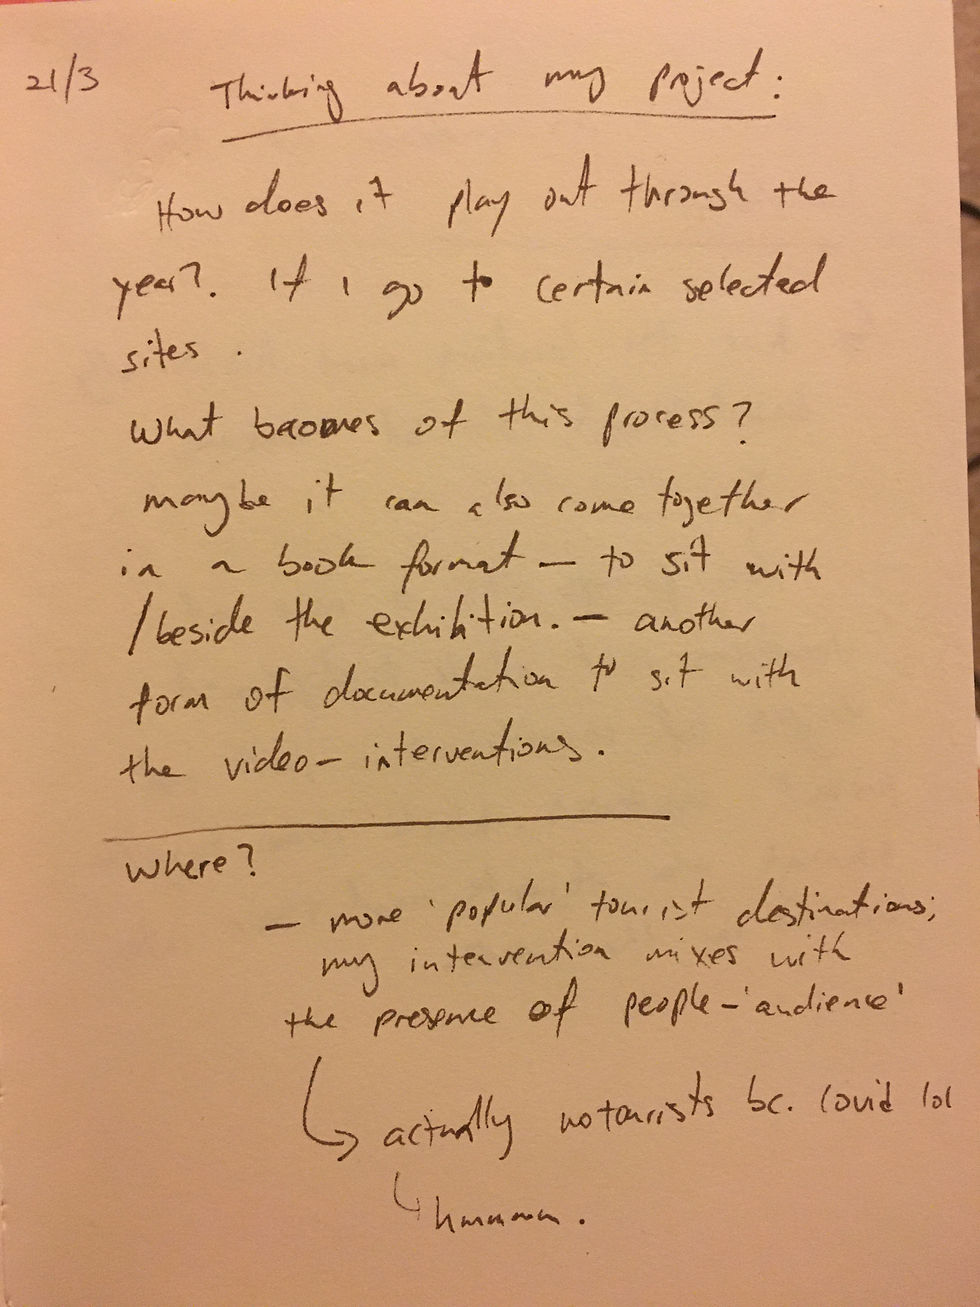 21/3 Thinking about my project:
How does it play out through the
year?. If I go to certain selected
sites.
What becomes of this process?
maybe it can also come together
in a book format — to sit with
/beside the exhibition. — another
form of documentation to sit with
the video-interventions.
Where?
— more 'popular' tourist destinations;
my intervention mixes with
the presence of people - 'audience'
↳ actually no tourists bc. covid lol
↳ hmmmm.